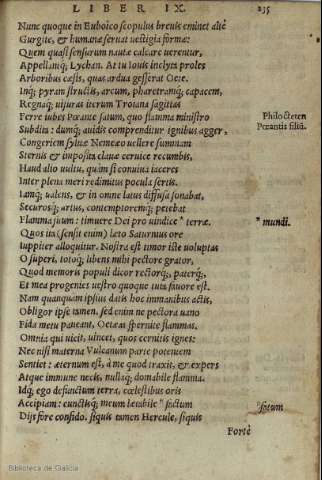 LIBER IX. 235
Nunc quoque in Euboico scopulus breuis eminet altè
Gurgite, & humanæ seruat uestigia formæ:
Quem quasi sensurum nautæ calcare uerentur,
Appellantq; Lychan. At tu Iouis inclyta proles
Arboribus cæsis, quas ardua gesserat Oete,
Inq; pyram structis, arcum, pharetramq; capacem,
Regnaq; uisuras iterum Troiana sagittas
Ferre iubes Pœante satum, quo flamma ministro
Subdita: dumq; auidis comprenditur ignibus agger,
Congeriem syluæ Nemeæo uellere summam
Sternis & imposita clauæ ceruice recumbis,
Haud alio uultu, quàm si conuiua iaceres
Inter plena meri redimitus pocula sertis.
Iamq; ualens, & in omne latus diffusa sonabat,
Securosq; artus, contemptoremq; petebat
Flamma suum: timuere Dei pro uindice " terræ.
Quos ita (sensit enim) læto Saturnius ore
Iuppiter alloquitur. Nostra est timor iste uoluptas
O superi, totoq; libens mihi pectore grator,
Quod memoris populi dicor rectorq;, paterq;,
Et mea progenies uestro quoque tuta fauore est.
Nam quanquam ipsius datis hoc immanibus actis,
Obligor ipse tamen. sed enim ne pectora uano
Fida metu paueant, Oetæas spernite flammas.
Omnia qui uicit, uincet, quos cernitis ignes:
Nec nisi materna Vulcanum parte potentem
Sentiet: æternum est, à me quod traxit, & expers
Atque immune necis, nullaq; domabile flamma.
Idq; ego defunctum terra, cœlestibus oris
Accipiam: cunctisq; meum lætabile " factum
Dijs fore confido. siquis tamen Hercule, siquis
Fortè
Philocteten
Pœantis filiũ.
" mundi.
" fatum
Biblioteca de Galicia